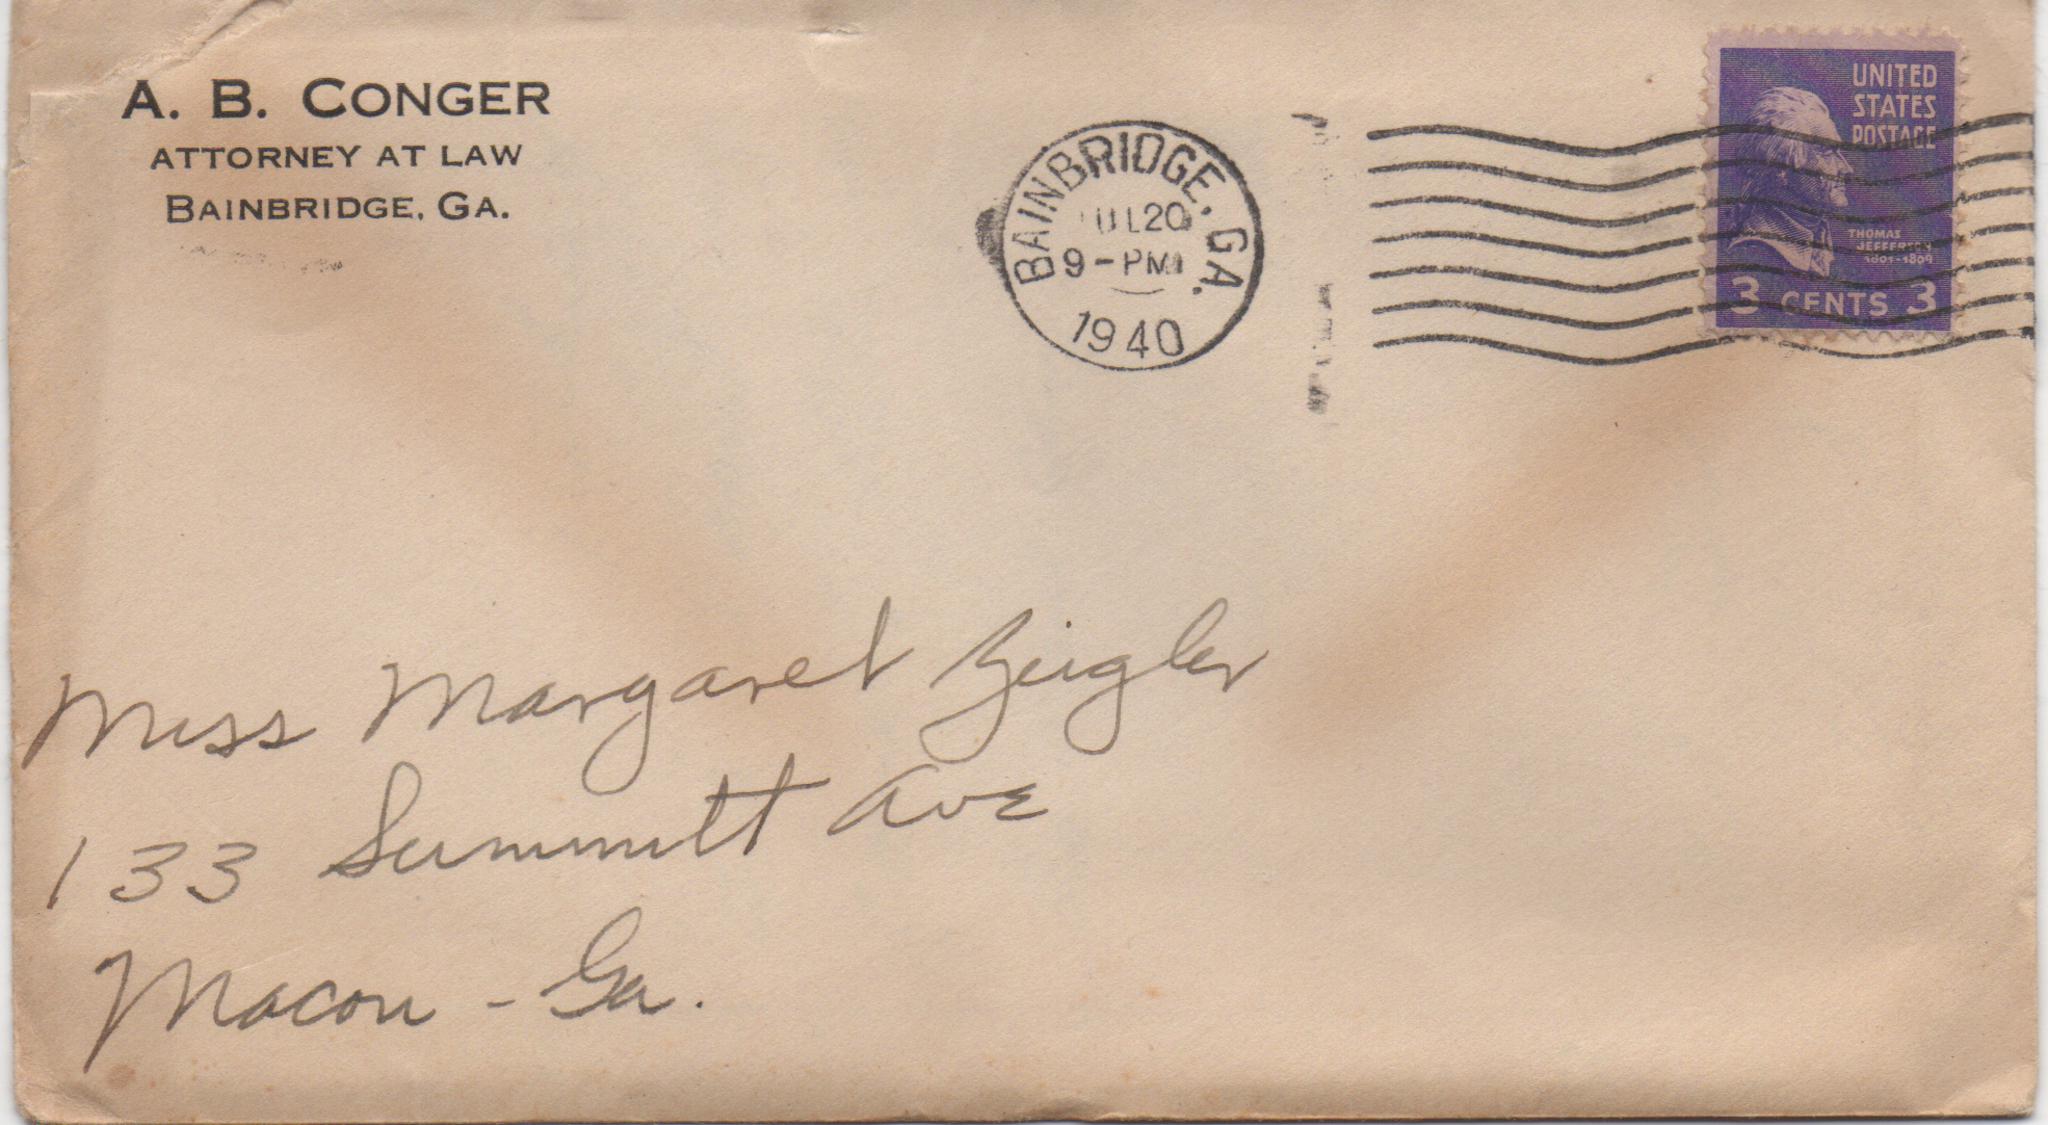 A. B. CONGER
ATTORNEY AT LAW
BAINBRIDGE, GA.
BAINBRIDGE, GA.
JUL 20
9 - PM
1940
UNITED
STATES
POSTAGE
THOMAS
JEFFERSON
1801-1809
3 CENTS 3
Miss Margaret Zeigler
133 Summitt Ave
Macon - Ga.